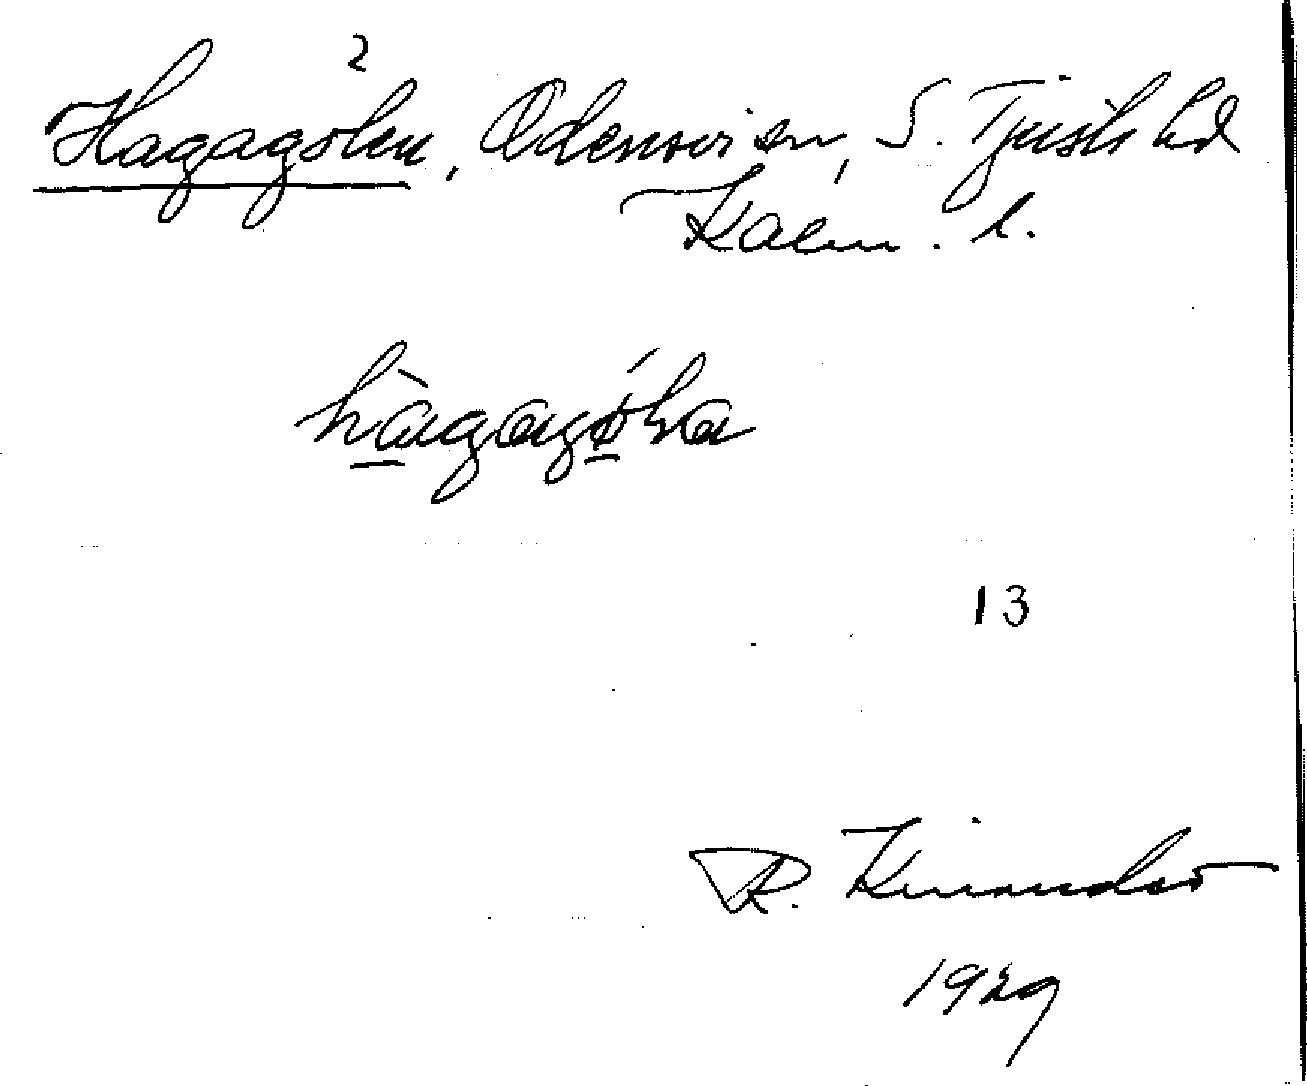 2
Hagagölen, Odensvi sn, S. Tjusts hd
Kalm. l.
hàgagǿlɑ
13
R. Kinander
1929